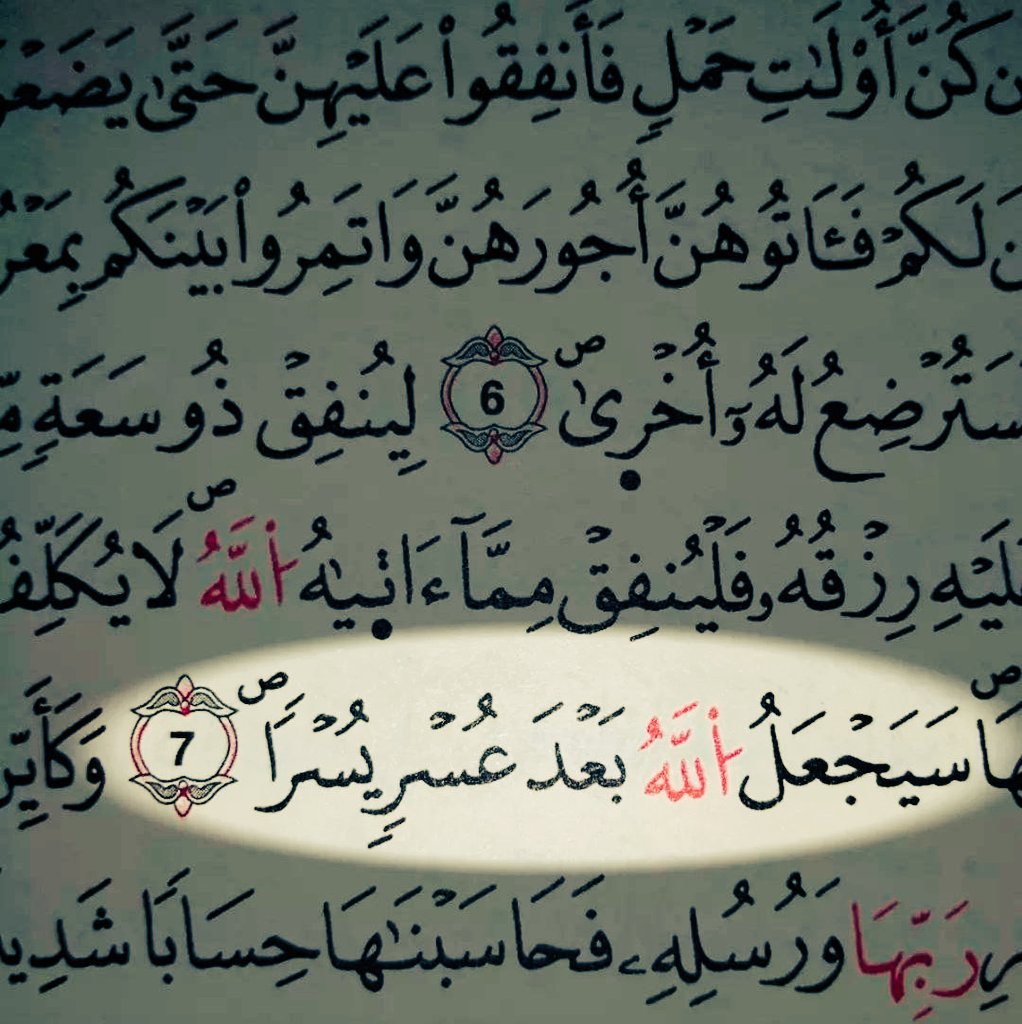 ن كُنَّ أُوْلَٰتِ حَمْلٖ فَأَنفِقُواْ عَلَيْهِنَّ حَتَّىٰ يَضَعْ
نَ لَكُمْ فَـَٔاتُوهُنَّ أُجُورَهُنَّ وَاتَمِرُواْ بَيْنَكُم بِمَعْرُ
سَتُرْضِعُ لَهُۥٓ أُخْر۪ىٰۖ 6 لِيُنفِقْ ذُو سَعَةٖ مِّ
عَلَيْهِ رِزْقُهُۥ فَلْيُنفِقْ مِمَّآ ءَات۪يٰهُ اُ۬للَّهُۖ لَا يُكَلِّفُ
هَاۖ سَيَجْعَلُ اُ۬للَّهُ بَعْدَ عُسْرٖ يُسْراٗۖ 7 وَكَأَيِّن
رِ رَبِّهَا وَرُسُلِهِۦ فَحَاسَبْنَٰهَا حِسَاباٗ شَدِي